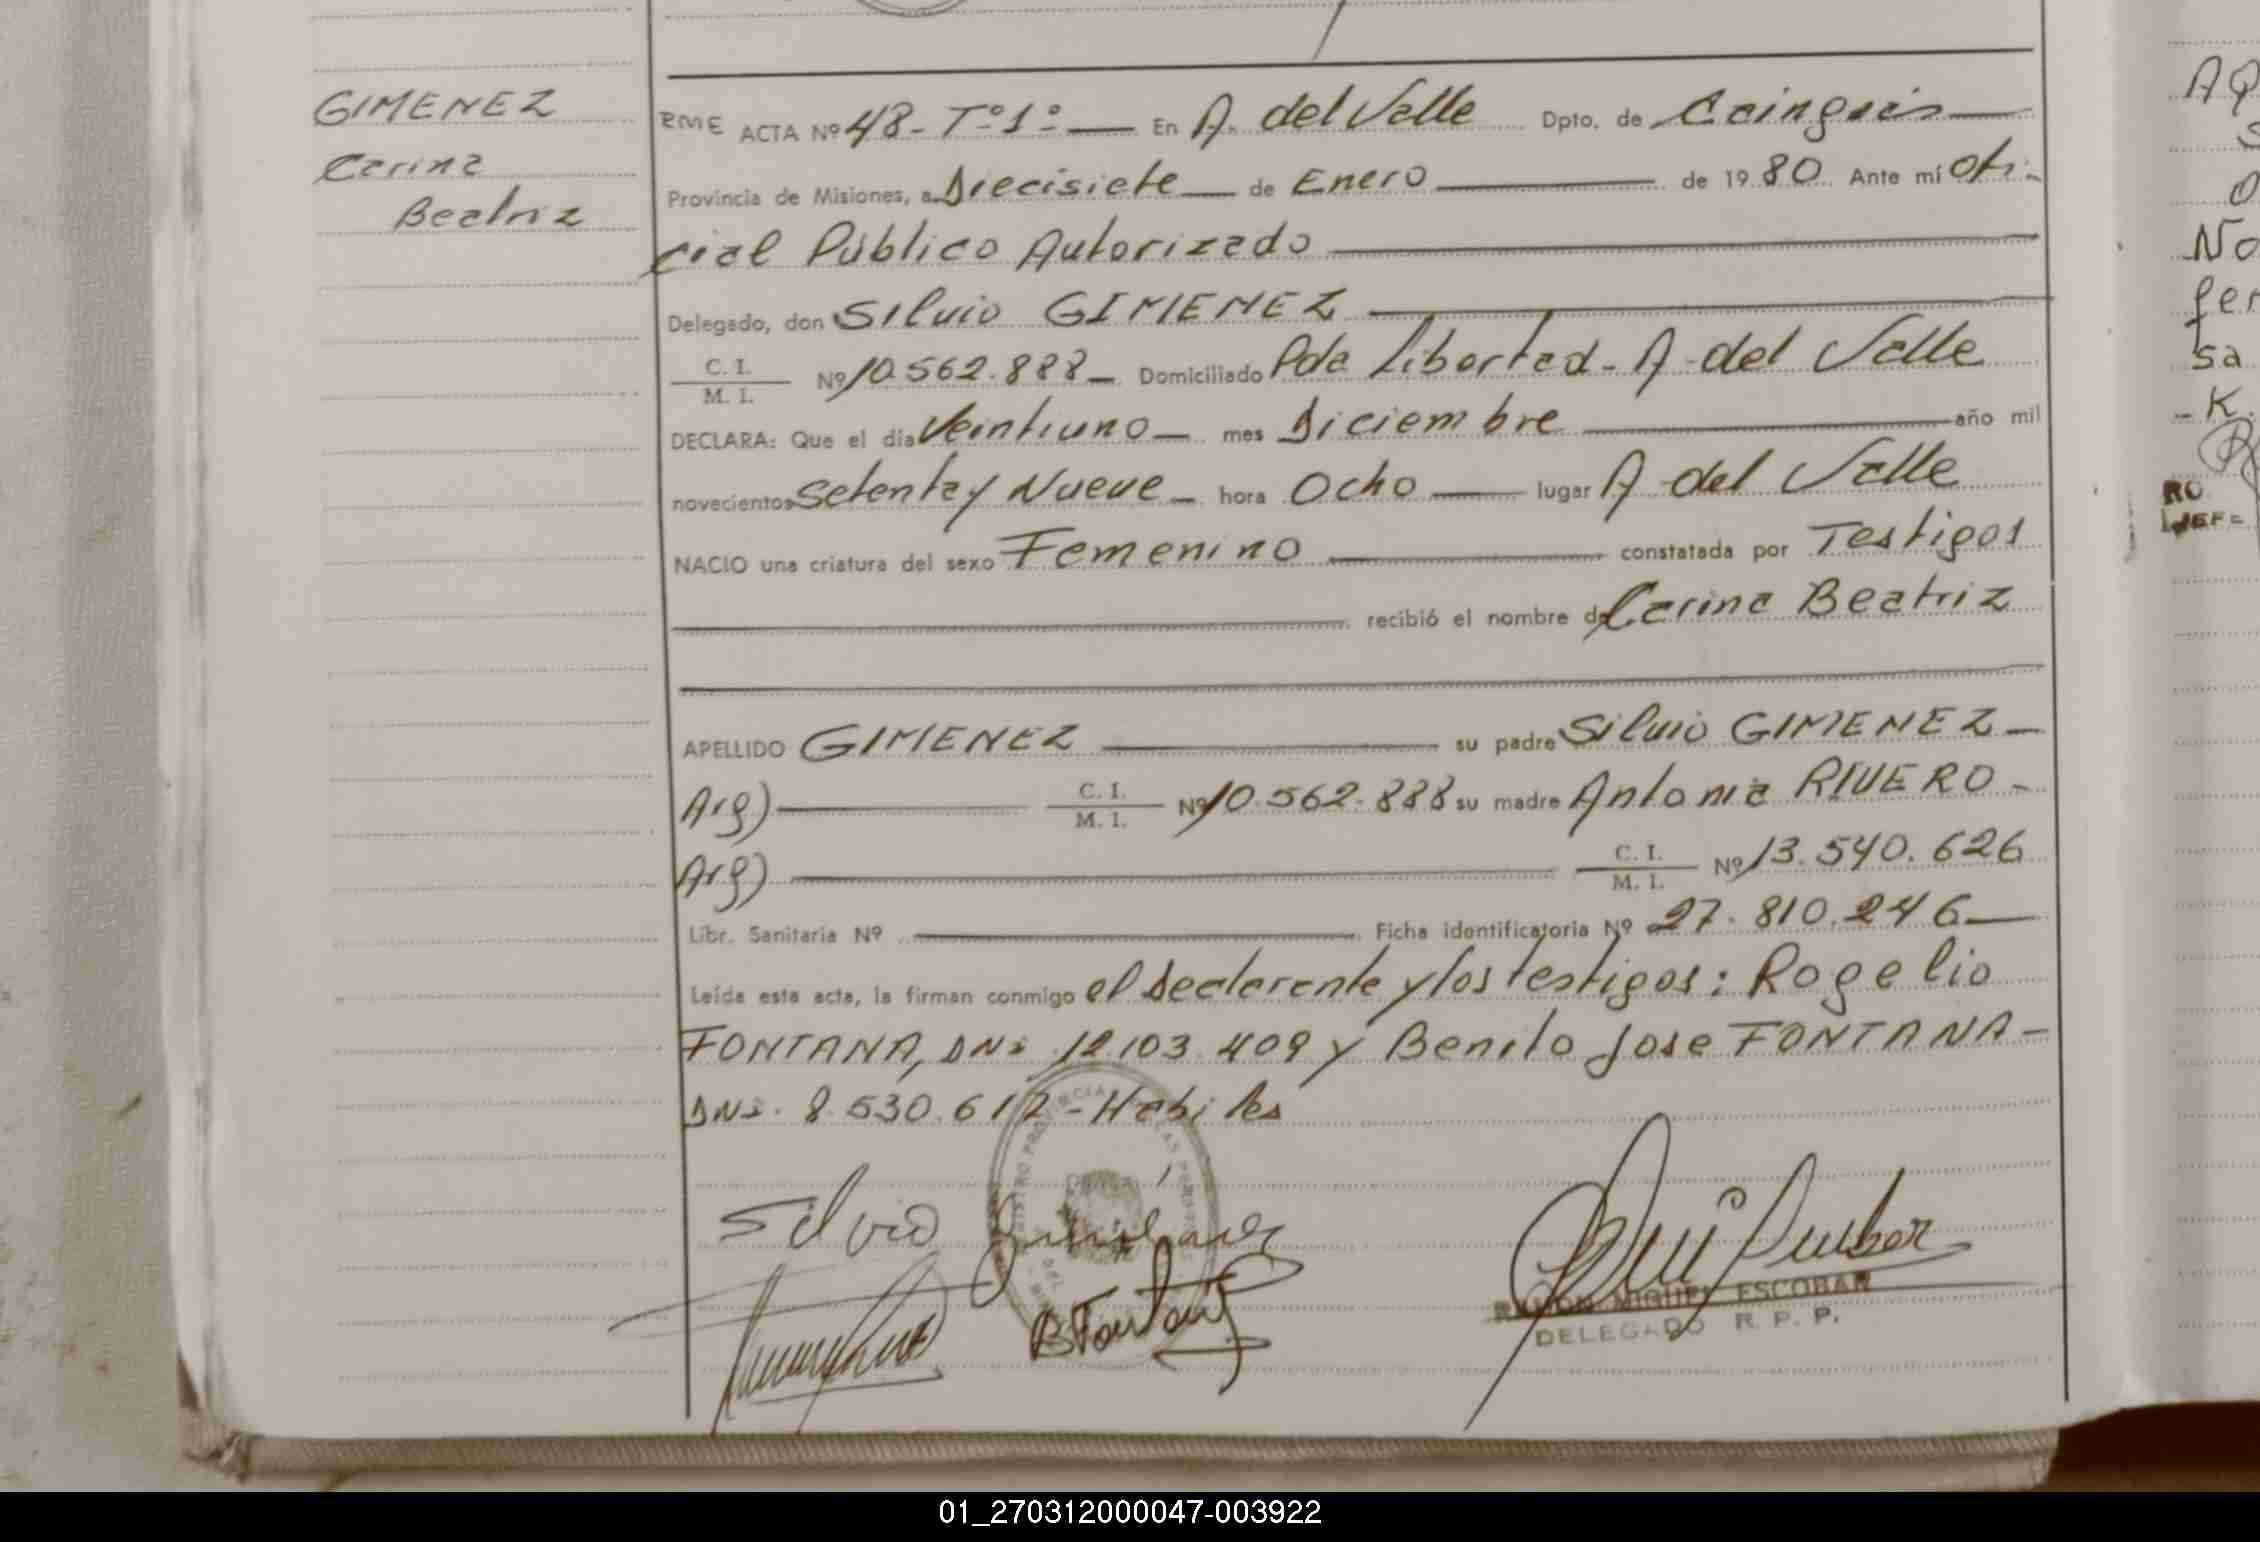 GIMENEZ
Carina
Beatriz
RME ACTA Nº 48- Tº1º- En A. del Valle Dpto. de Cainguás
Provincia de Misiones, a Diecisiete de Enero de 1980 Ante mí Ofi-
cial Público Autorizado
Delegado, don Silvio GIMENEZ
C. I.
M. I.
Nº 10.562.888 Domiciliado Pda Libertad - A - del Valle
DECLARA: Que el día Veintiuno mes Diciembre año mil
novecientos Setenta y Nueve hora Ocho lugar A del Valle
NACIO una criatura del sexo Femenino constatada por Testigos
recibió el nombre de Carina Beatriz
APELLIDO GIMENEZ su padre Silvio GIMENEZ
Arg) C. I.
M. I.
Nº 10.562.888 su madre Antonia RIVERO
Arg) C. I.
M. I.
Nº 13.540.626
Libr. Sanitaria Nº Ficha identificatoria Nº 27.810.246
Leída esta acta, la firman conmigo el declarante y los testigos: Rogelio
FONTANA, DNI 12.103.409 y Benito Jose FONTANA-
DNI. 8.530.612 - Habiles
Silvio
B Fontana
RAMON MIGUEL ESCOBAR
DELEGADO R. P. P.
No
fer
sa
- K.
RO
JEFE
01_270312000047-003922